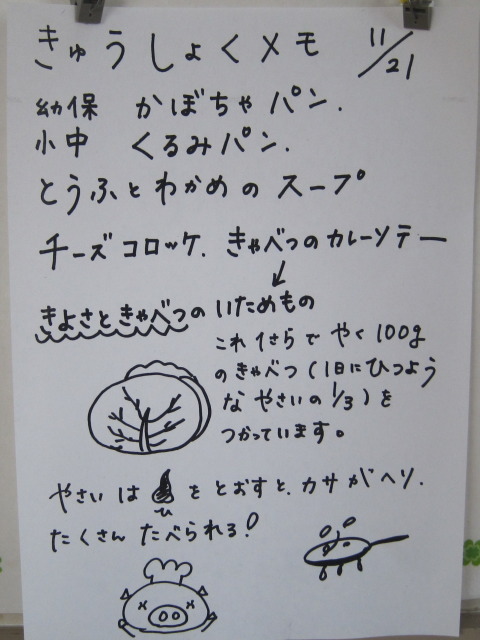 きゅうしょくメモ 11/21
幼保 かぼちゃパン.
小中 くるみパン.
とうふとわかめのスープ
チーズコロッケ. きゃべつのカレーソテー
きよさときゃべつのいためもの
これ1さらでやく100g
のきゃべつ(1日にひつよう
なやさいの1/3)を
つかっています。
やさいは ひ をとおすと、カサがヘリ.
たくさんたべられる!